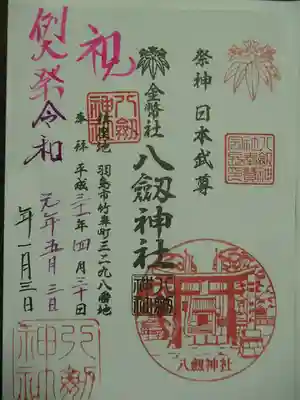 祭神 日本武尊
金幣社
八劔神社
鎮座地 羽島市竹鼻町三二九八番地
参拝 平成三十一年四月三十日
祝
例大祭 令和
元年五月三日
年一月三日
八劔神社
八劔神社
八劔神社
八劔神社